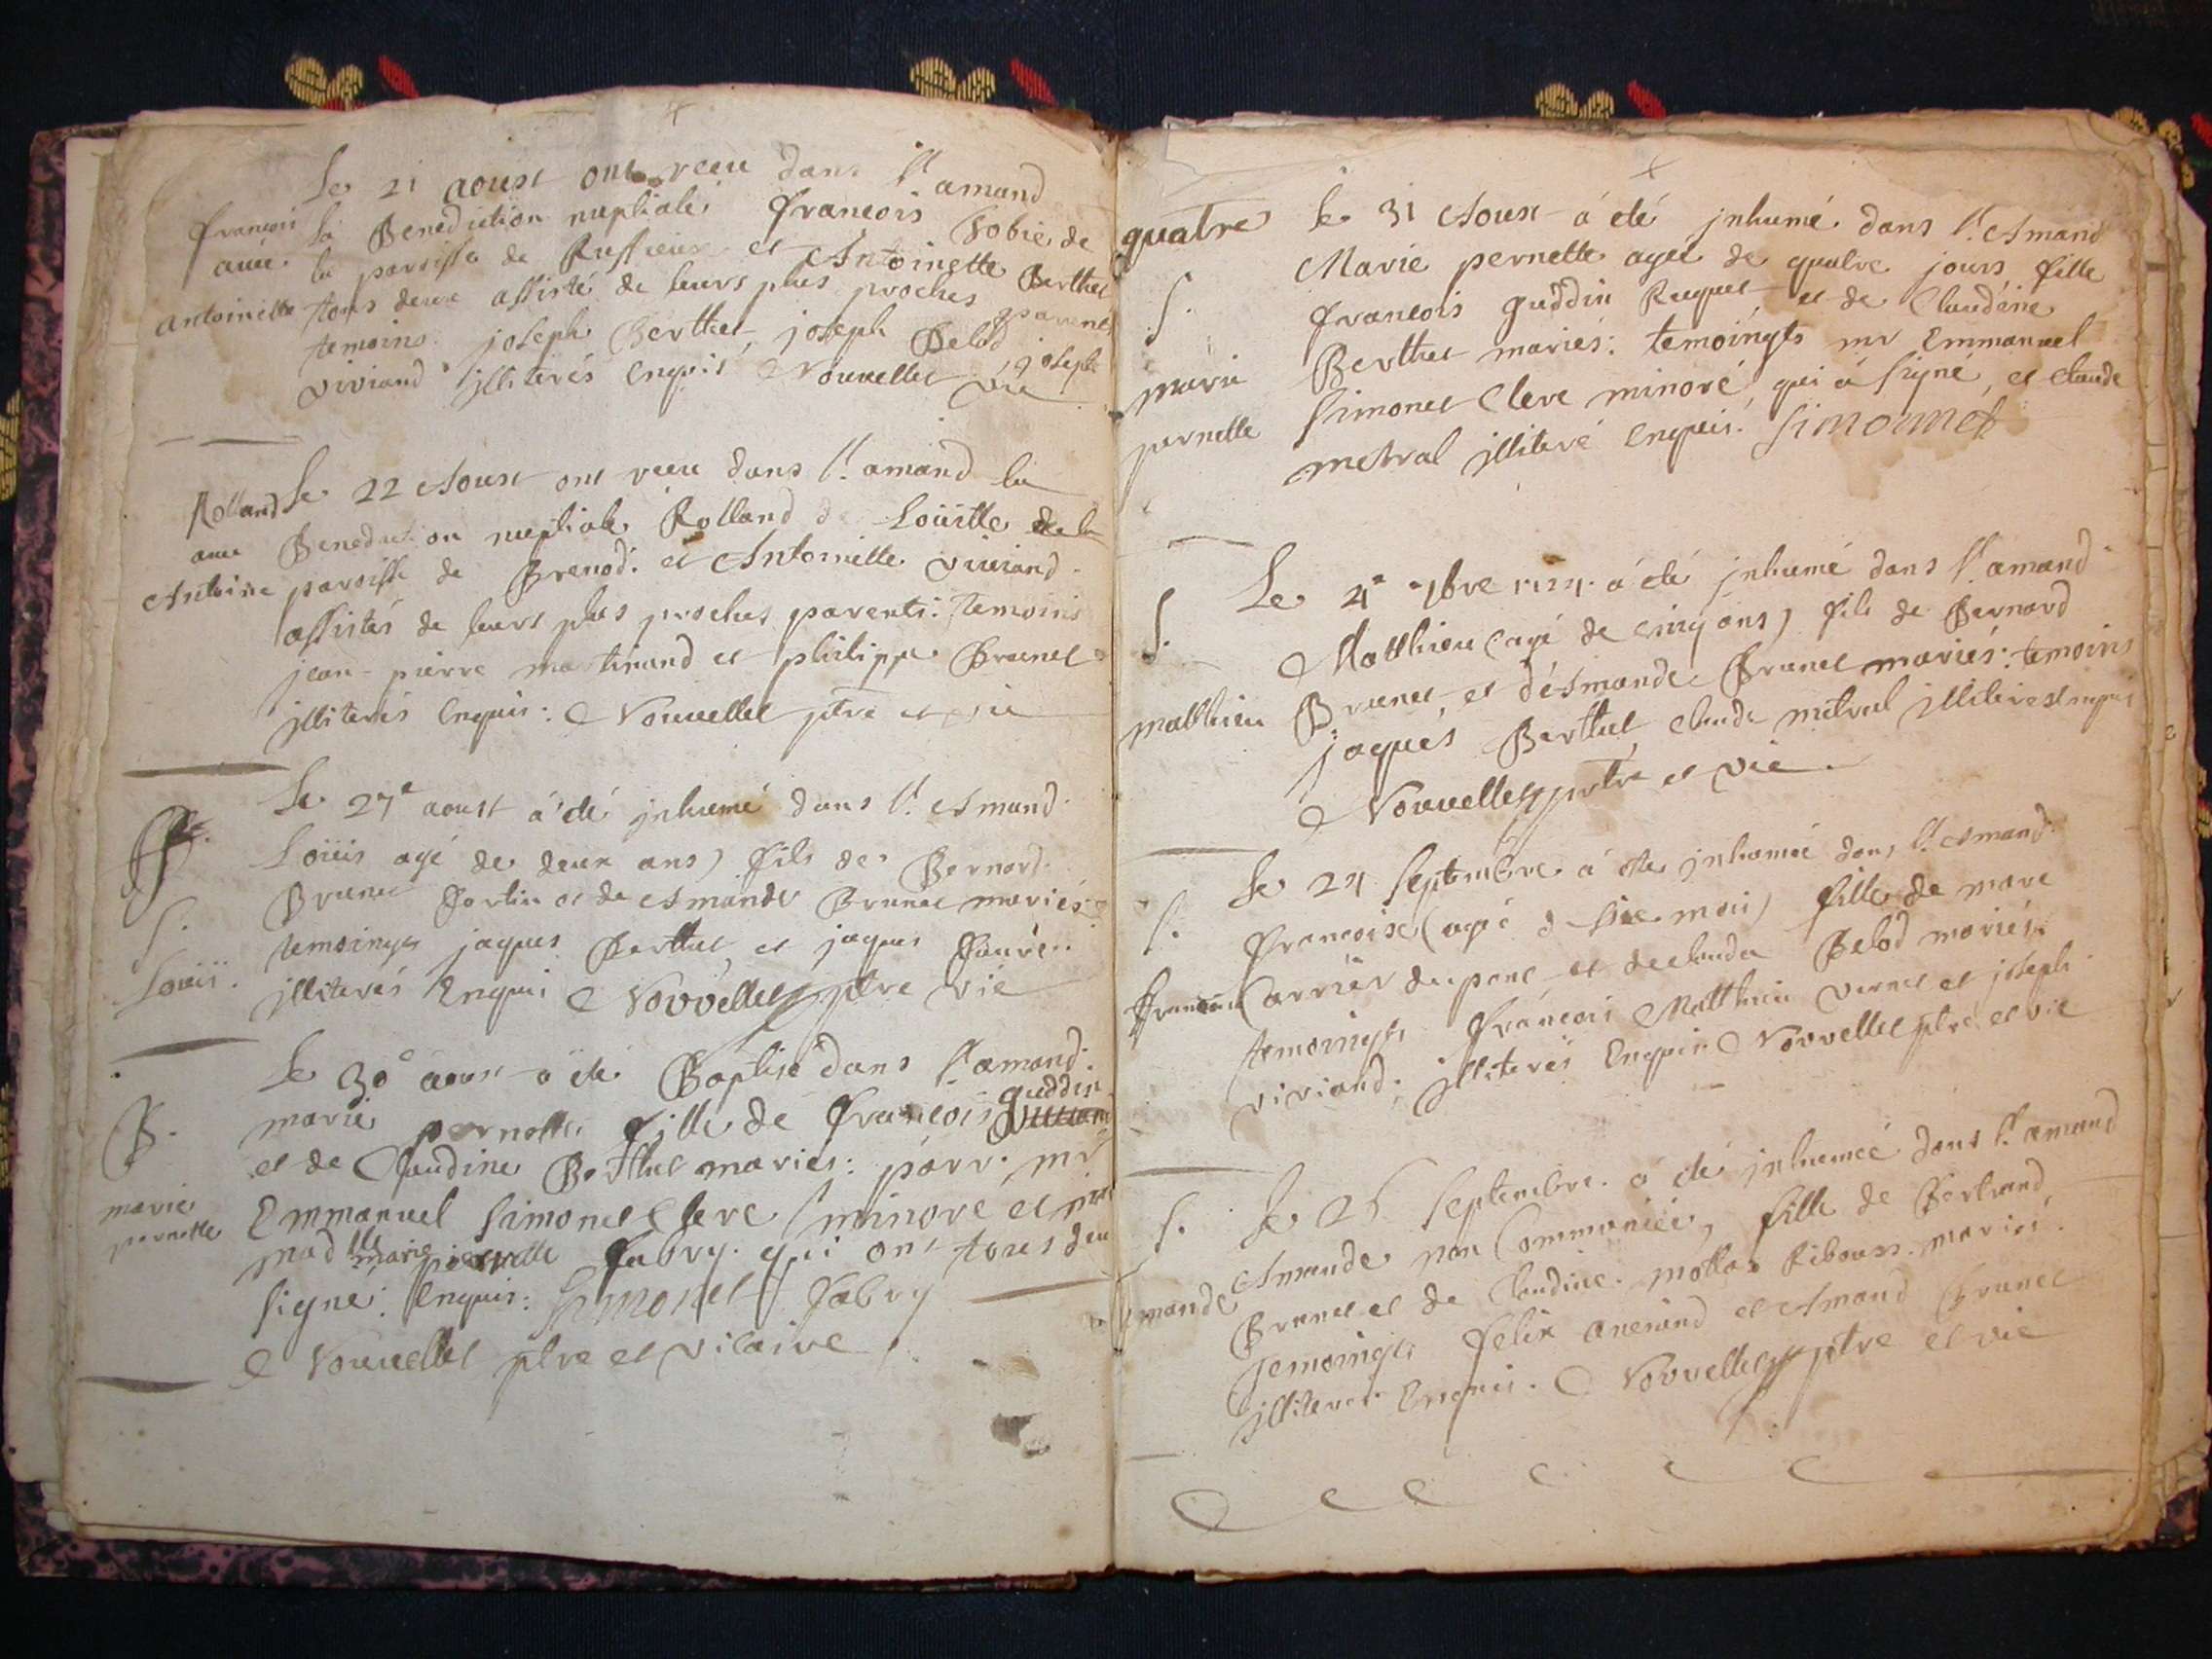 Le 21 aoust ont receu dans St amand
françois la Benediction nuptiale françois Sobie de
avec la paroisse de Ruffieux et Antoinette Berthet
antoinette tous deux assisté de leurs plus proches parents
temoins joseph Berthet, joseph Belod joseph
viviand illiterés Enquis Nouvellet vic
Rolland Le 22 Aoust ont receu dans St amand la
avec Benediction nuptiale Rolland de Loüitte de la
Antoine paroisse de Brenod et Antoinette viviand
assistés de leurs plus proches parents: Temoins
jean-pierre martinand et philippe Brunet
illiterés Enquis: C Nouvellet ptre et vic
Le 27e aoust a été inhumé dans St Amand
Loüis agé de deux ans) fils de Bernard
Brunet et de Amande Brunet mariés
S.
temoingts jaques Berthet, et jaques
Loüis.
illiterés Enquis C Nouvellet ptre vic
Le 30e aoust a été Baptisé dans St amand
guddin
B. marie pernette fille de francois
et de Claudine Berthet mariés: parr. mr
marie Emmanuel Simonet Clerc minoré et
pernette
madlle marie pernette fabry. qui ont tous deux
signé: Enquis: Simonet fabry
C Nouvellet ptre et vicaire
quatre Le 31 Aoust a été inhumé dans St Amand
Marie pernette agee de quatre jours fille
S. francois guddin Ruquet et de Claudine
Berthet mariés: temoingts mr Emmanuel
marie Simonet Clerc minoré, qui a signé, et claude
pernette metral illiteré Enquis. Simonnet
Le 4e 7bre 1724 a été inhumé dans St amand
S. Matthieu (agé de cinq ans) fils de Bernard
matthieu Brunet, et d'Amande Brunet mariés: temoins
jaques Berthet claude metral illiteres Enquis
C Nouvellet ptre et vic.
Le 24 Septembre a été inhumée dans St Amand
S. francoise (agée d six mois) fille de marc
francoise Carrier dupont et de clauda Belod mariés.
temoingts francois Matthieu vernet et joseph
viviand; illiterés Enquis C Nouvellet ptre et vic
S. Le 26 Septembre a été inhumée dans St amand
Amande Amande non Communiée, fille de Bertrand
Brunet et de Claudine mariés.
Temoingts felix et Amand Brunet
illiterés Enquis. C Nouvellet ptre et vic